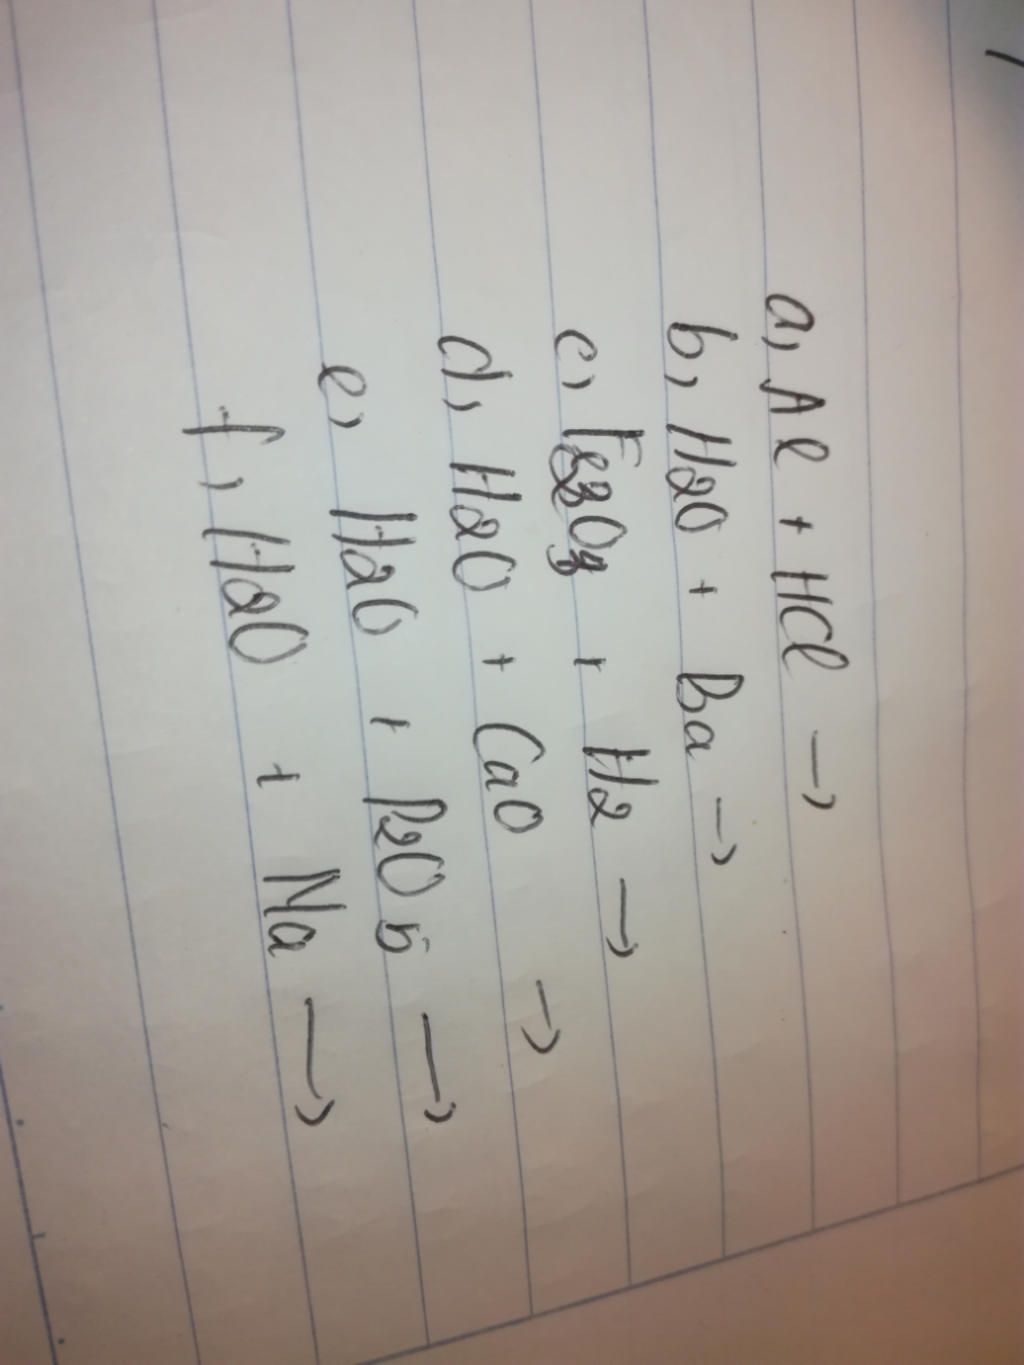 a, Al + HCl →
b, H2O + Ba →
c, Fe3O4 + H2 →
d, H2O + CaO →
e, H2O + P2O5 →
f, H2O + Na →